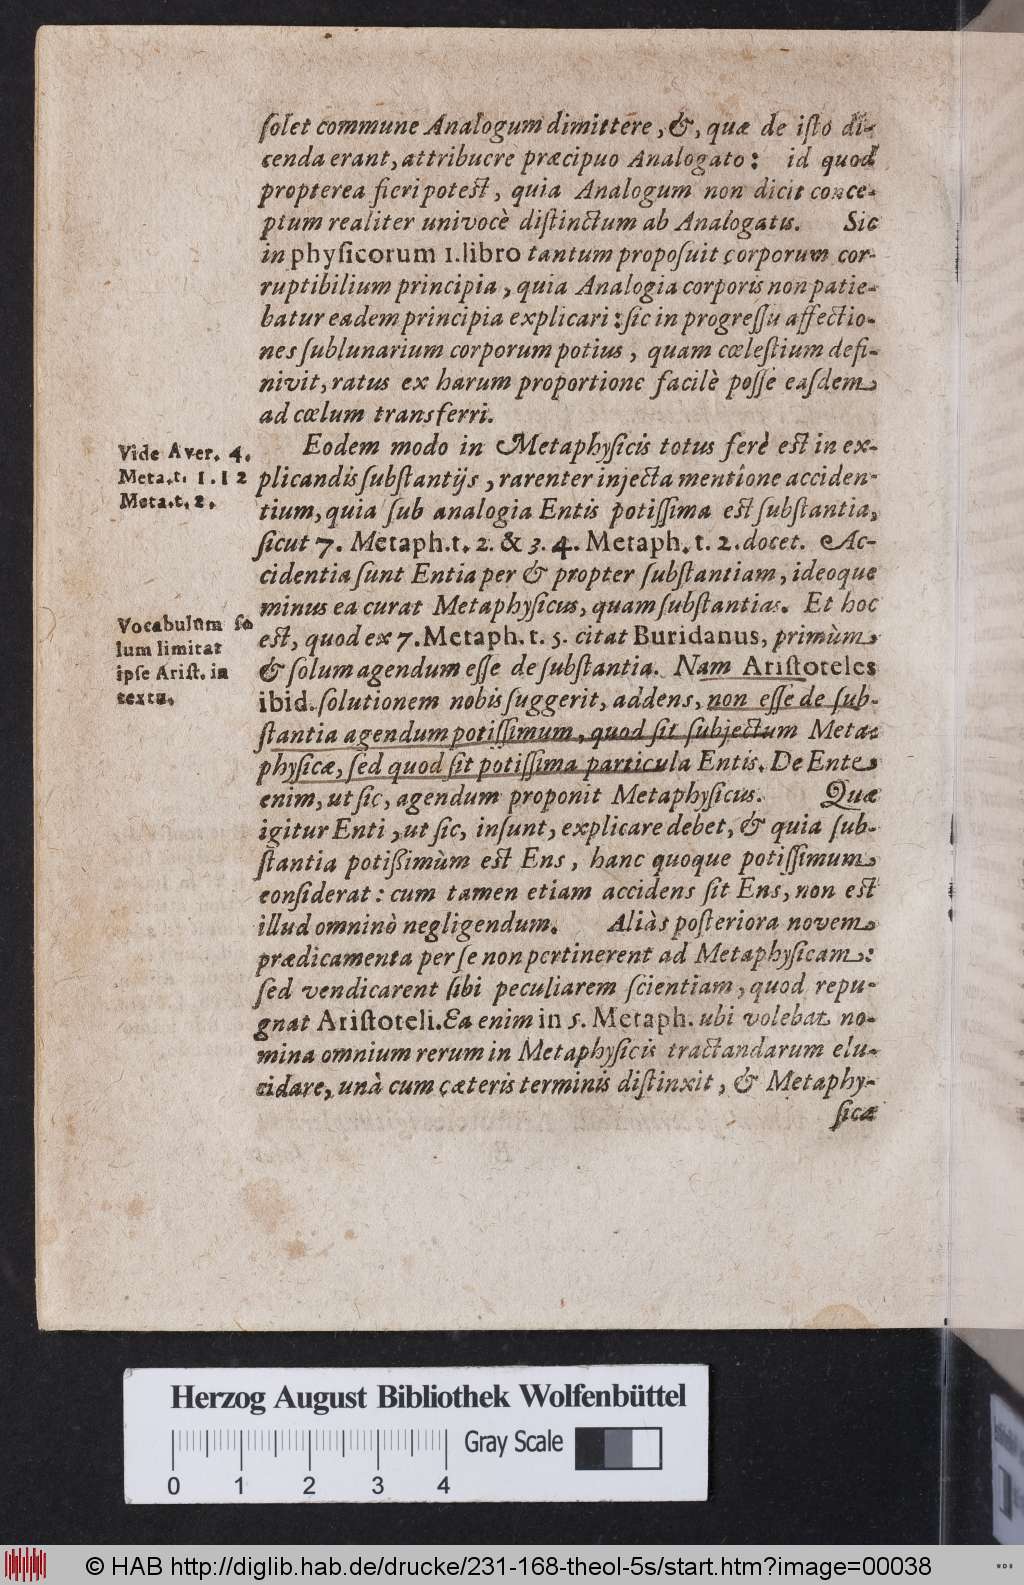 ſolet commune Analogum dimittere, &, quæ de iſto di-
cenda erant, attribuere præcipuo Analogato: id quod
propterea fieri poteſt, quia Analogum non dicit conce-
ptum realiter univocè diſtinctum ab Analogatis. Sic
in phyſicorum 1. libro tantum propoſuit corporum cor-
ruptibilium principia, quia Analogia corporis non patie-
batur eadem principia explicari: ſic in progreſſu affectio-
nes ſublunarium corporum potius, quam cœleſtium defi-
nivit, ratus ex harum proportione facilè poſſe eaſdem
ad cœlum transferri.
Eodem modo in Metaphyſicis totus ferè eſt in ex-
plicandis ſubſtantijs, rarenter injecta mentione acciden-
tium, quia ſub analogia Entis potiſſima eſt ſubſtantia,
ſicut 7. Metaph. t. 2. & 3. 4. Metaph. t. 2. docet. Ac-
cidentia ſunt Entia per & propter ſubſtantiam, ideoque
minus ea curat Metaphyſicus, quam ſubſtantias. Et hoc
eſt, quod ex 7. Metaph. t. 5. citat Buridanus, primùm
& ſolum agendum eſſe de ſubſtantia. Nam Ariſtoteles
ibid. ſolutionem nobis ſuggerit, addens, non eſſe de ſub-
ſtantia agendum potiſſimum, quod ſit ſubjectum Meta-
phyſicæ, ſed quod ſit potiſſima particula Entis. De Ente
enim, ut ſic, agendum proponit Metaphyſicus. Quæ
igitur Enti, ut ſic, inſunt, explicare debet, & quia ſub-
ſtantia potißimùm eſt Ens, hanc quoque potiſſimum
conſiderat: cum tamen etiam accidens ſit Ens, non eſt
illud omninò negligendum. Aliàs poſteriora novem
prædicamenta per ſe non pertinerent ad Metaphyſicam:
ſed vendicarent ſibi peculiarem ſcientiam, quod repu-
gnat Ariſtoteli. Ea enim in 5. Metaph. ubi volebat no-
mina omnium rerum in Metaphyſicis tractandarum elu-
cidare, unà cum cæteris terminis diſtinxit, & Metaphy-
ſicæ
Vide Aver. 4.
Meta. t. 1. 12
Meta. t. 2.
Vocabulum ſo
lum limitat
ipſe Ariſt. in
textu.
Herzog August Bibliothek Wolfenbüttel
Gray Scale
0 1 2 3 4
© HAB http://diglib.hab.de/drucke/231-168-theol-5s/start.htm?image=00038